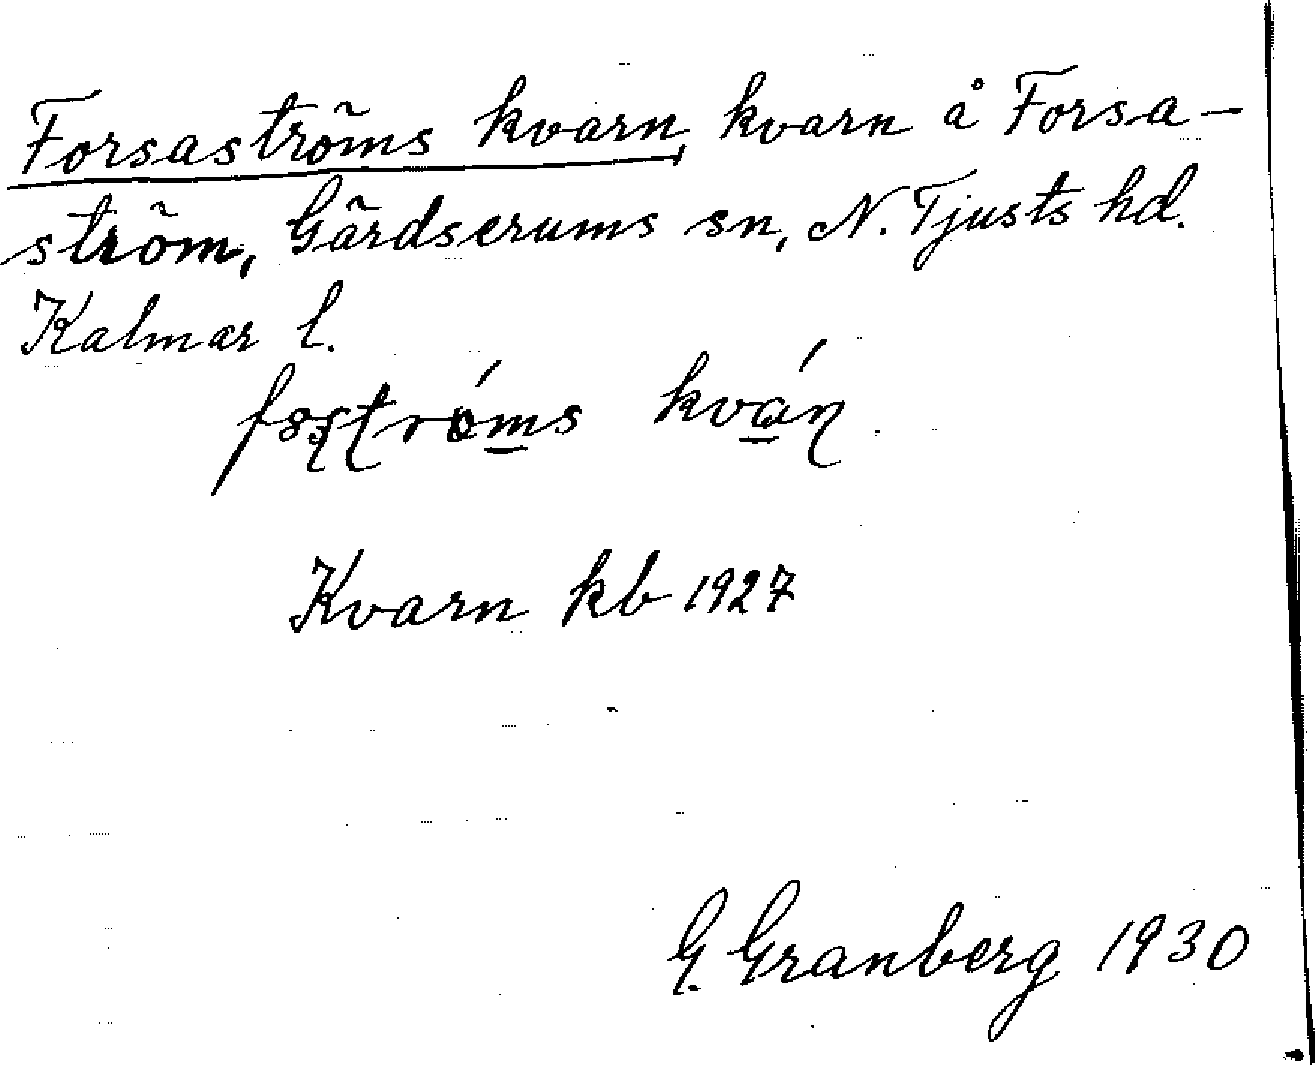 Forsaströms kvarn, kvarn å Forsa-
ström, Gärdserums sn, N. Tjusts hd.
Kalmar l.
kván
Kvarn kb 1927
G. Granberg 1930